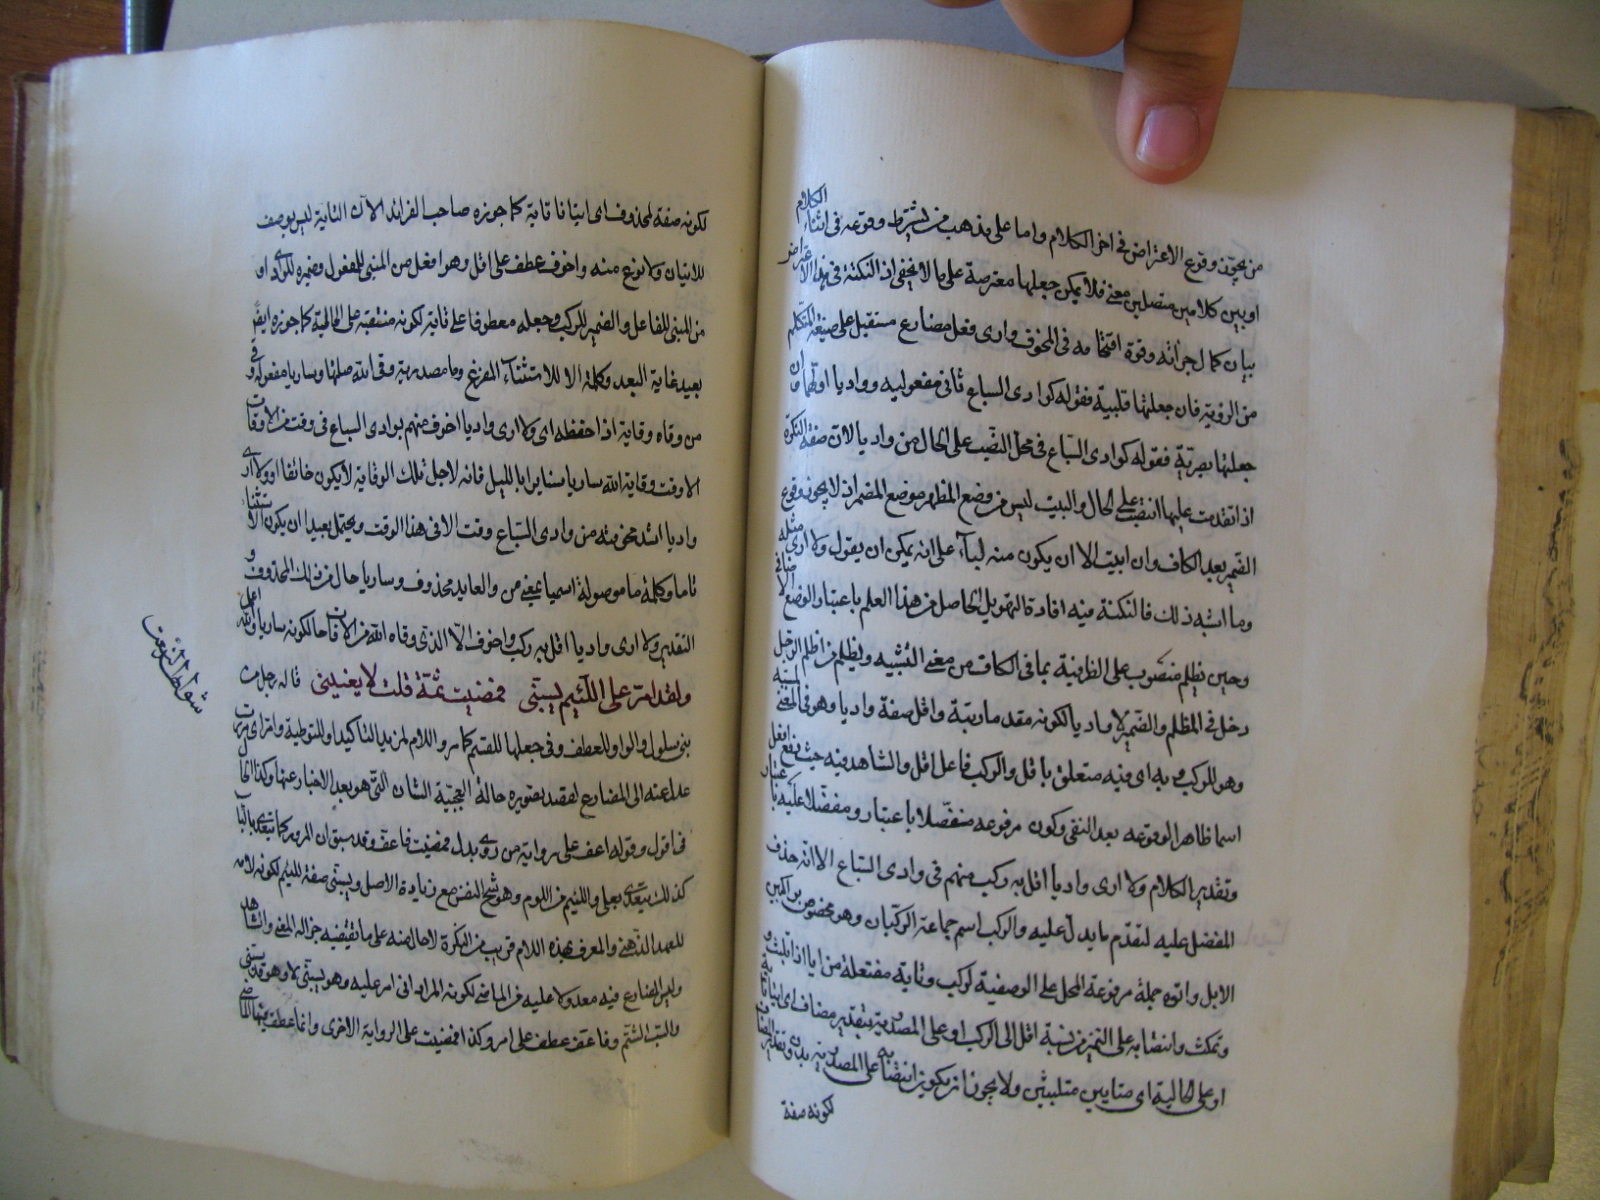 من يجوّز وقوع الاعتراض في اخر الكلام واما على مذهب من يشترط وقوعه في اثناء الكلام
او بين كلامين متصلين معنى فلا يمكن جعلها معترضة على ما لا يخفى اذ النكتة في هذا الاعتراض
بيان كمال جرأته وقوة اقتحامه في المخوف وارى فعل مضارع مستقبل على صيغة المتكلم
من الرؤية فان جعلتها قلبية فقوله كوادى السباع ثانى مفعوليه وواديا اولهما وان
جعلتها بصرية فقوله كوادى السباع في محل النصب على الحال من واديا لان صفة النكرة
اذا تقدمت عليها انتصبت على الحال والبيت ليس من وضع المظهر موضع المضمر اذ لا يجوز وقوع
الضمير بعد الكاف وان ابيت الا ان يكون منه لبناء على انه يمكن ان يقول ولا ارى مثله
وما اشبه ذلك فالنكتة فيه افادة التهويل الحاصل من هذا العلم باعتبار الوضع الاضافى
وحين يظلم منصوب على الظرفية بما في الكاف من معنى التشبيه ويظلم من اظلم الرجل
دخل في المظلم والضمير لواديا لكونه مقدما رتبة واقل صفة واديا وهو في المعنى لمسببه
وهو للركب وبه اى فيه متعلق باقل والركب فاعل اقل والشاهد فيه حيث رفع افعل
اسما ظاهرا لوقوعه بعد النفى وكون مرفوعه مفضلا باعتبار ومفضلا عليه باعتبار
وتقدير الكلام ولا ارى واديا اقل به ركب منهم في وادى السباع الا انه حذف
المفضل عليه لتقدم ما يدل عليه والركب اسم جماعة الركبان وهو مخصوص براكبين
الابل واتوه جملة مرفوعة المحل على الوصفية لركب وتاية مفتعلة من ايا اذا تلبث و
وتمكث وانتصابه على التميز من نسبة اقل الى الركب او على المصدرية بتقدير مضاف اى اتيان تاية
او على الحالية اى متايين متلبثين ولا يجوز ان يكون انتصابه على المصدرية بدون تقدير المضاف
لكونه صفة
لكونه صفة لمحذوف اى اتيانا تاية كما جوزه صاحب الفرائد لان التاية ليس بوصف
للاتيان ولا نوع منه واخوف عطف على اقل وهو افعل من المبنى للمفعول وضميره للوادى او
من المبنى للفاعل والضمير للركب وجعله معطوفا على تاية لكونه منتصبة على الحالية كما جوزه ايضا
بعيد غاية البعد وكلمة الا للاستثناء المفرغ وما مصدرية وقى الله صلتها وساريا مفعول وقى
من وقاه وقاية اذا حفظه اى ولا ارى واديا اخوف منهم بوادى السباع في وقت من الاوقات
الا وقت وقاية الله ساريا سايرا بالليل فانه لاجل تلك الوقاية لا يكون خائفا او ولا ارى
واديا اشد مخوفية من وادى السباع وقت الا في هذا الوقت ويحتمل بعيدا ان يكون الاستثناء
تاما وكلمة ما موصولة اسميا بمعنى من والعايد محذوف وساريا حال من ذلك المحذوف و
التقدير ولا ارى واديا اقل به ركب واخوف الا الذى وقاه الله من الافات حال كونه ساريا والله اعلم
ولقد امر على اللئيم يسبنى فمضيت ثمة قلت لا يعنينى قاله رجل من
بنى سلول والواو للعطف وفى جعلها للقسم كما مر واللام لمزيد التاكيد او للتوطية وامر اى مررت
عدل عنه الى المضارع لقصد تصويره حالة العجيبة الشان التى هو بعد الاخبار عنها وكذا الحال
فى اقول وقوله اعف على رواية من روى بدل فمضيت فاعف وقد سبق ان المرور كما يتعدى بالباء
كذلك يتعدى بعلى واللئيم من اللوم وهو شح النفس مع زيادة الاصل ويسبنى صفة للئيم لكونه لامه
للعهد الذهنى والمعرف بهذه اللام قريب من النكرة لا حال منه على ما تقتضيه جزالة المعنى والشاهد
وليس المضارع فيه معدولا عليه من الماضى لكونه المراد انى امر عليه وهو يسبنى لا وهو قد يسبنى
والسب الشتم وفاعف عطف على امر وكذا فمضيت على الرواية الاخرى وانما عطف بصيغة الماضى